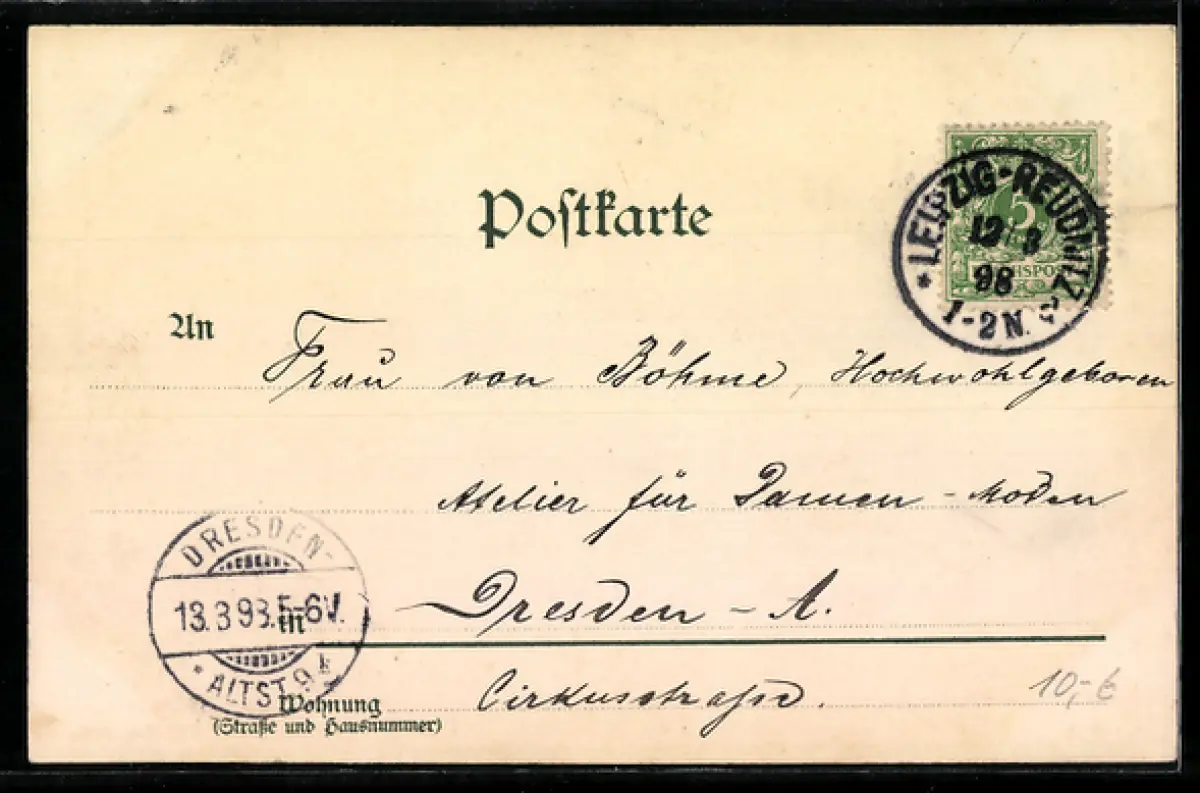 Postkarte
5
PFENNIG
REICHSPOST
* LEIPZIG-REUDNITZ
12 3
98
1-2N.
An Frau von Böhme, Hochwohlgeboren
Atelier für Damen-Moden
in Dresden-A.
DRESDEN-
13.3.98.5-6V.
* ALTST. 9
Wohnung Cirkusstraße.
(Straße und Hausnummer)
10,- €